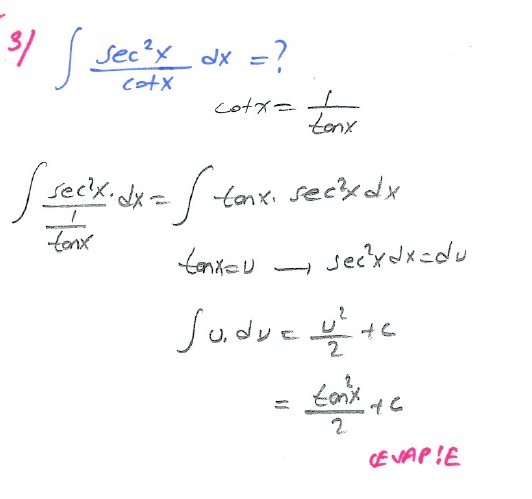 3/ ∫ sec²x / cotx dx = ?
cotx = 1 / tanx
∫ sec²x / (1 / tanx) . dx = ∫ tanx . sec²x dx
tanx = u → sec²x dx = du
∫ u . du = u² / 2 + c
= tan²x / 2 + c
CEVAP : E